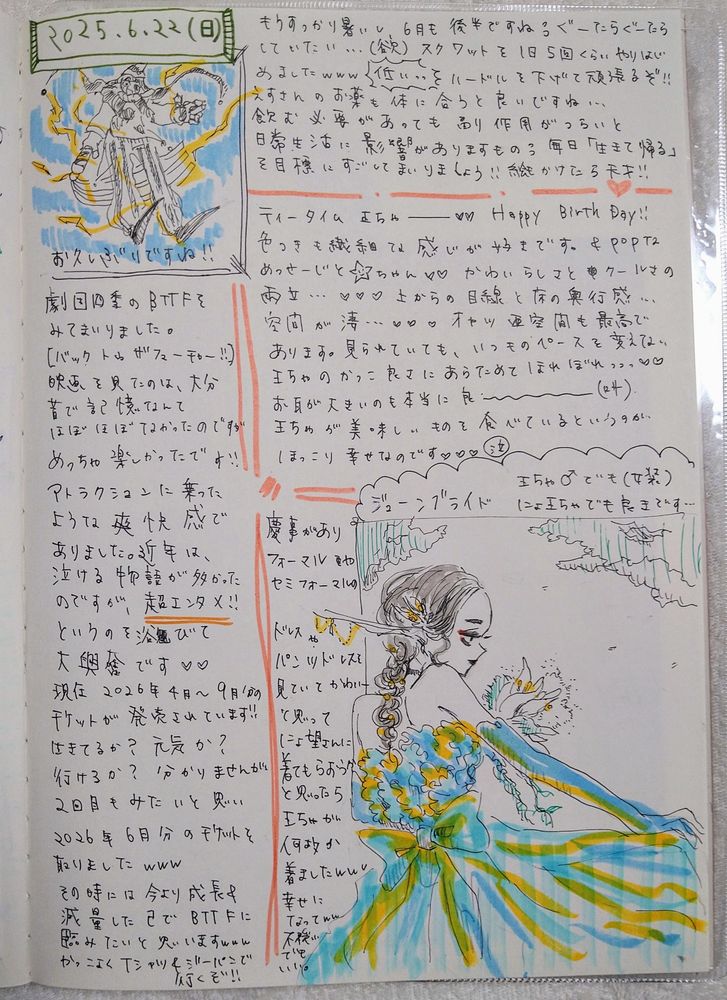 2025.6.22(日)
お久しぶりですね!!
もうすっかり暑いし、6月も後半ですねぇ ぐーたらぐーたら
していたい…(欲) スクワットを1日5回くらいやりはじ
めましたwww 低いっっ ハードルを下げて頑張るぞ!!
えすさんのお薬も体に合うと良いですね…
飲む必要があっても副作用がつらいと
日常生活に影響がありますものね 毎日「生きて帰る」
を目標にすごしてまいりましょう!! 絵かけたら天才!!
ティータイム 王ちゃ――♡♡ Happy Birth Day!!
色つきも繊細な感じが好きです。& POPな
めっせーじと☆ちゃん♡♡ かわいらしさとクールさの
両立…♡♡♡ 上からの目線と床の奥行感…
空間が凄…♡♡♡ オヤツ亜空間も最高で
あります。見られていても、いつものペースを変えない
王ちゃのかっこ良さにあらためてほれぼれっっっ♡♡
お耳が大きいのも本当に良――(叫)
王ちゃが美味しいものを食べているというのが
ほっこり幸せなのです♡♡♡ 泣
劇団四季のBTTFを
みてまいりました。
(バックトゥザフューチャー!!)
映画を見たのは、大分
昔で記憶なんて
ほぼほぼてなかったのですが
めっちゃ楽しかったです!!
アトラクションに乗った
ような爽快感で
ありました。近年は、
泣ける物語が多かった
のですが、超エンタメ!!
というのを浴びて
大興奮です♡♡
現在2026年4月~9月分の
チケットが発売されています!!
生きてるか?元気か?
行けるか?分かりませんが
2回目もみたいと思い
2026年6月分のチケットを
取りましたwww
その時には今より成長&
減量した己でBTTFに
臨みたいと思いますwww
かっこよくTシャツ&ジーパンで
行くぞ!!
ジューンブライド
王ちゃ♂でも(女装)
にょ王ちゃでも良きです…
慶事があり
フォーマルや
セミフォーマルの
ドレスや
パンツドレスを
見ていてかわいー
と思って
にょ望さんに
着てもらおう
と思ったら
王ちゃが
何故か
着ましたwww
幸せに
なってww
不穏…
でも
いい。